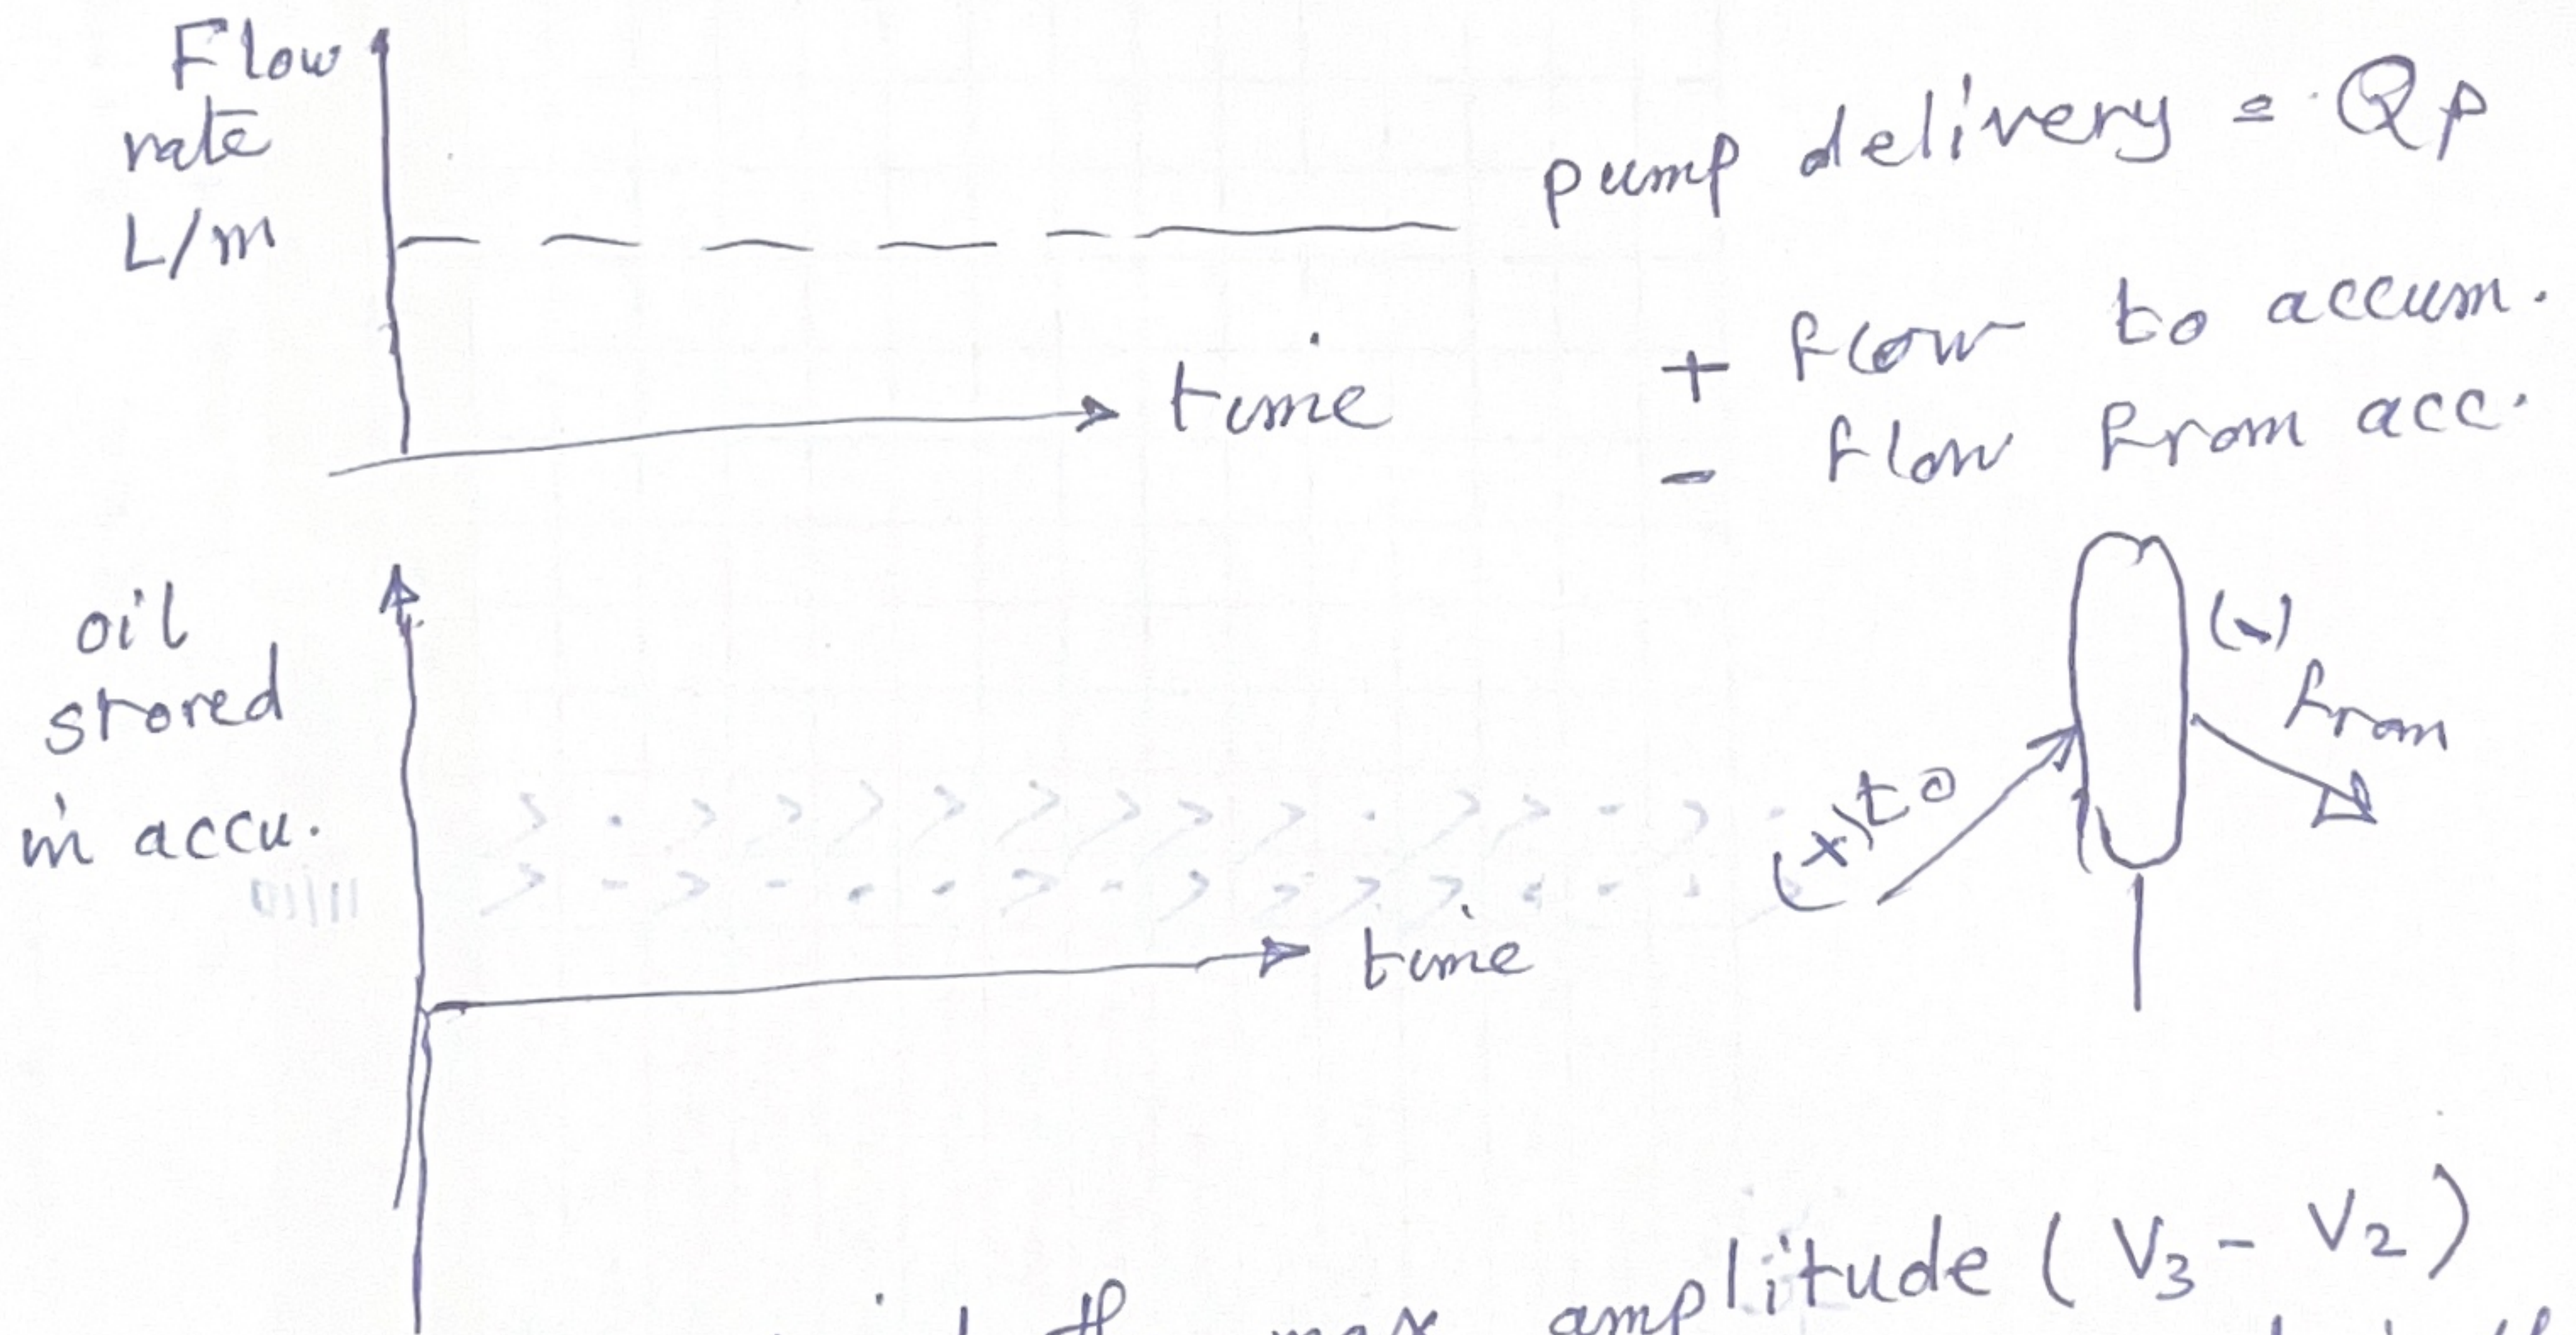 Flow
rate
L/m
pump delivery = Qp
+ flow to accum.
- flow from acc.
time
oil
stored
in accu.
(-)
from
(+) to
time
max amplitude ( V3 - V2 )